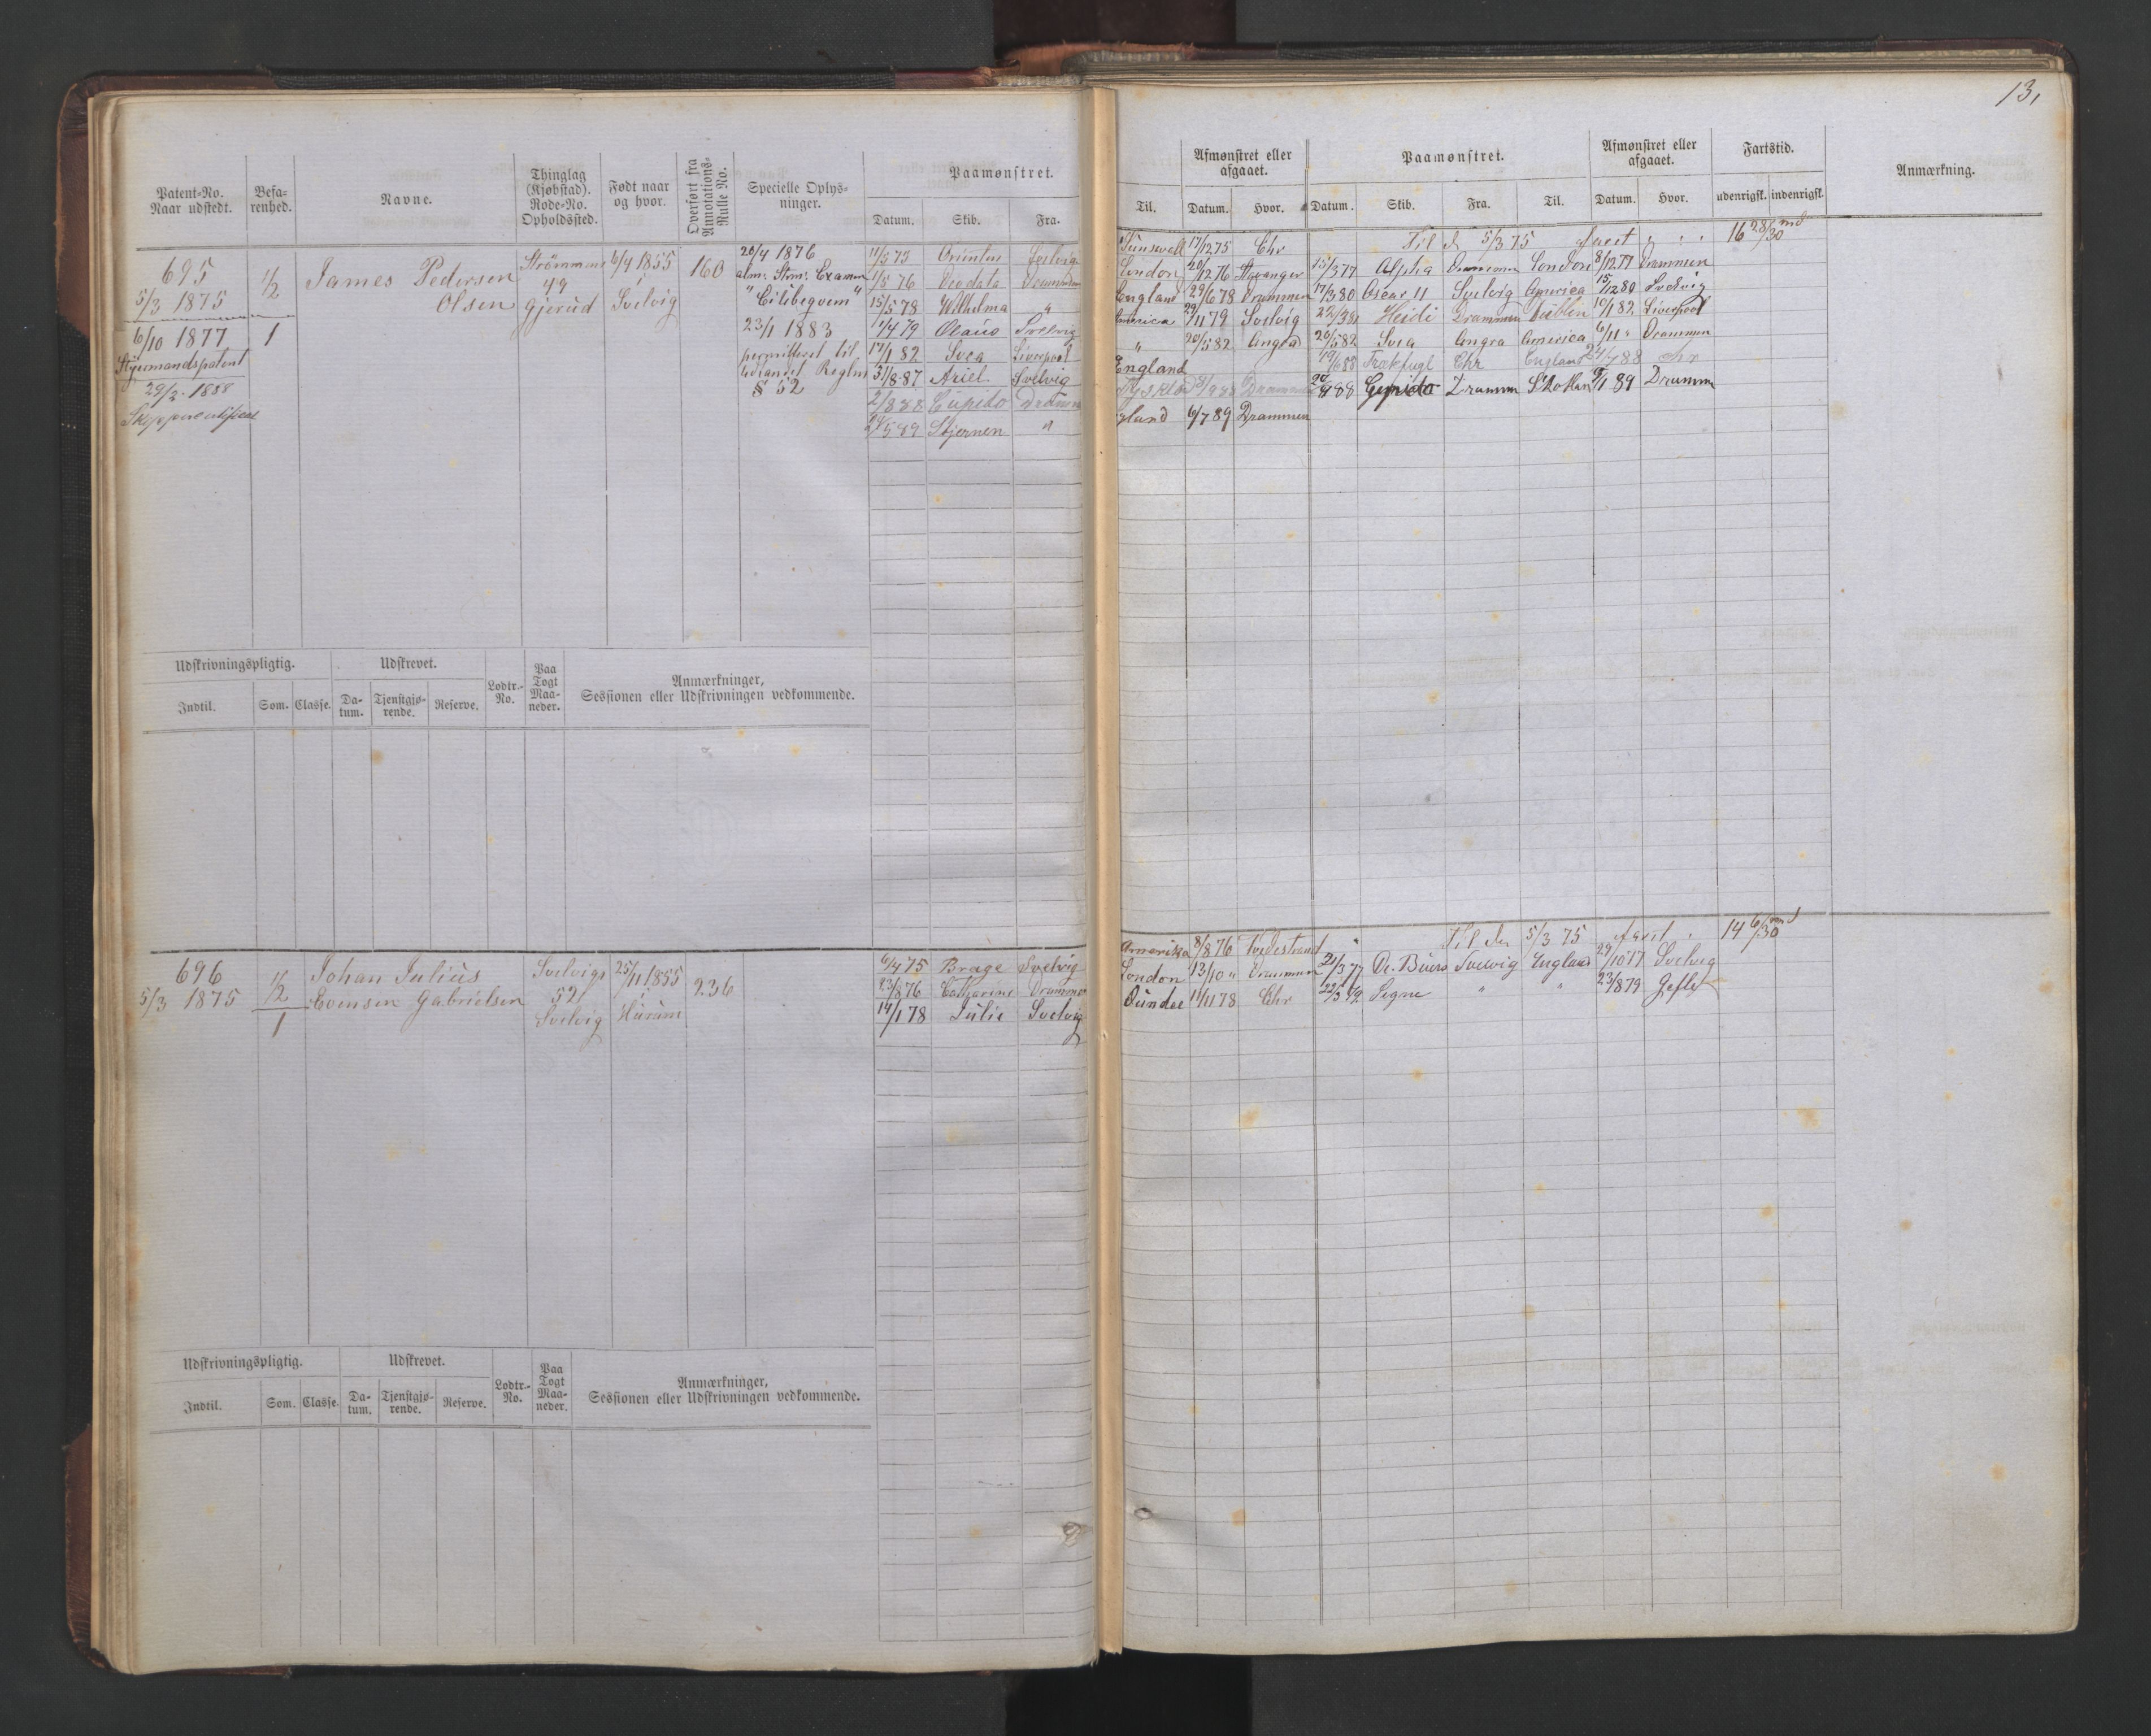 13,
Patent-No. Naar udstedt.
Befa-renhed.
Navne.
Thinglag (Kjøbstad). Rode-No. Opholdssted.
Født naar og hvor.
Overført fra Annotations-Rulle No.
Specielle Oplys-ninger.
Paamønstret.
Datum. Skib. Fra.
Til.
Afmønstret eller afgaaet.
Datum. Hvor.
Paamønstret.
Datum. Skib. Fra. Til.
Afmønstret eller afgaaet.
Datum. Hvor.
Fartstid.
udenrigsk. indenrigsk.
Anmærkning.
695
5/3 1875
6/10 1877
Styrmandspatent
29/2 1888
Skippercertificat
1/2
1
James Pedersen
Olsen
Strømmens
49
Gjerud
6/4 1855
Svelvig
160
20/4 1876
alm. Strm. Examen
"Eilibeqvem"
23/1 1883
permitteret til
udlandet Reglm
§ 52
Til d 5/3 75 faret " " " 16 28/30 md
11/5 75 Svelvig Sunswall 17/12 75 Chr
1/5 76 Deodata Drammen London 20/12 76 Stavanger 15/3 77 Alpha Drammen London 8/12 77 Drammen
15/5 78 Wilhelma " England 29/6 78 Drammen 17/3 80 Oscar II Svelvig America 15/12 80 Svelvig
11/4 79 Olaus Svelvig America 29/11 79 Svelvig 22/3 81 Heidi Drammen Dublin 10/1 82 Liverpool
17/1 82 Svea Liverpool " 20/5 82 Angra 20/5 82 Svea Angra America 6/11 " Drammen
31/8 87 Ariel Svelvig England 19/6 88 Trækfugl Chr England 24/7 88 Chr
2/8 88 Cupido Dramm Tyskld Drammen Cupido Dramm Skotlan 9/1 89 Dramm
24/5 89 Stjernen " gland 6/7 89 Drammen
Udskrivningspligtig. Udskrevet.
Lodtr.-No.
Paa Togt Maa-neder.
Anmærkninger,
Sessionen eller Udskrivningen vedkommende.
Indtil. Som. Classe. Da-tum. Tjenstgjø-rende. Reserve.
696
5/3 1875
1/2
1
Johan Julius
Evensen Gabrielsen
Svelvigs
52
Svelvig
25/11 1855
Hurum
236
Til den 5/3 75 faret " 14 6/30 md
6/4 75 Brage Svelvig Amerika 8/8 76 Tvedestrand
23/8 76 Catharine Drammen London 13/10 " Drammen 21/3 77 Svelvig England 29/10 77 Svelvig
14/1 78 Julie Svelvig Dundee 11/11 78 Chr 22/5 79 Signe " " 23/8 79 Gefle
Udskrivningspligtig. Udskrevet.
Lodtr.-No.
Paa Togt Maa-neder.
Anmærkninger,
Sessionen eller Udskrivningen vedkommende.
Indtil. Som. Classe. Da-tum. Tjenstgjø-rende. Reserve.